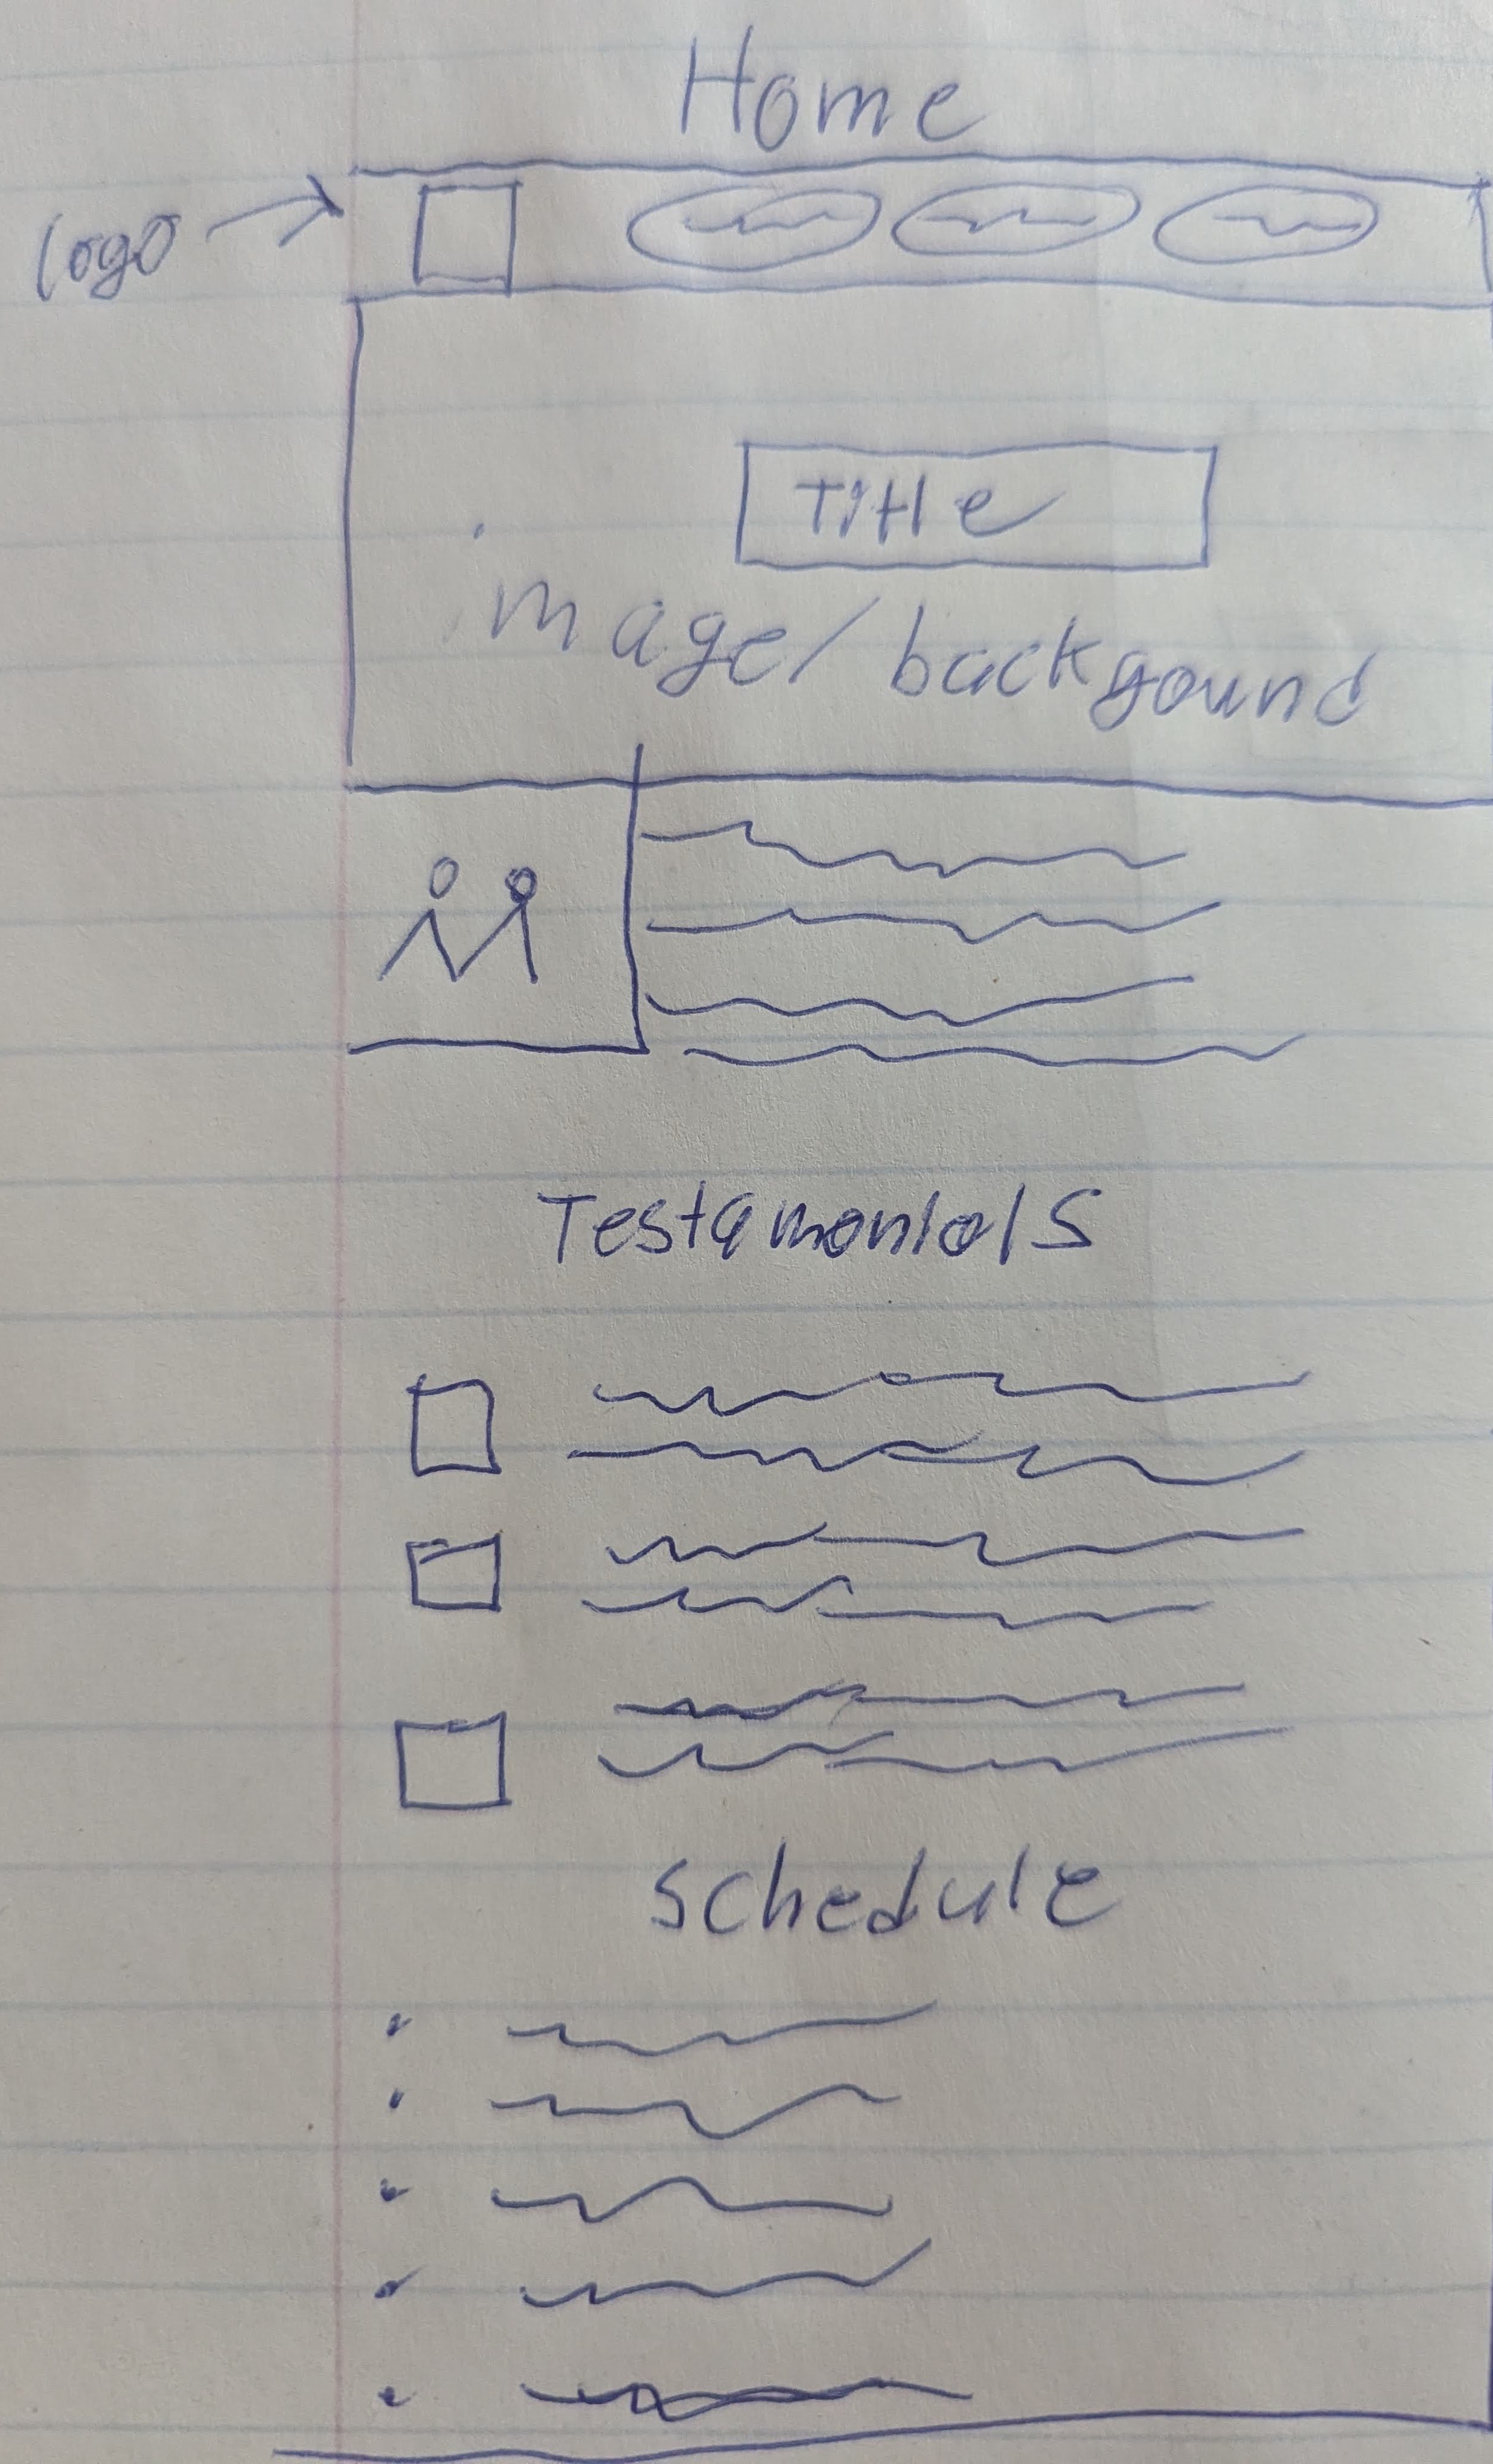 Home
logo
Title
image/backgound
Testamonials
schedule